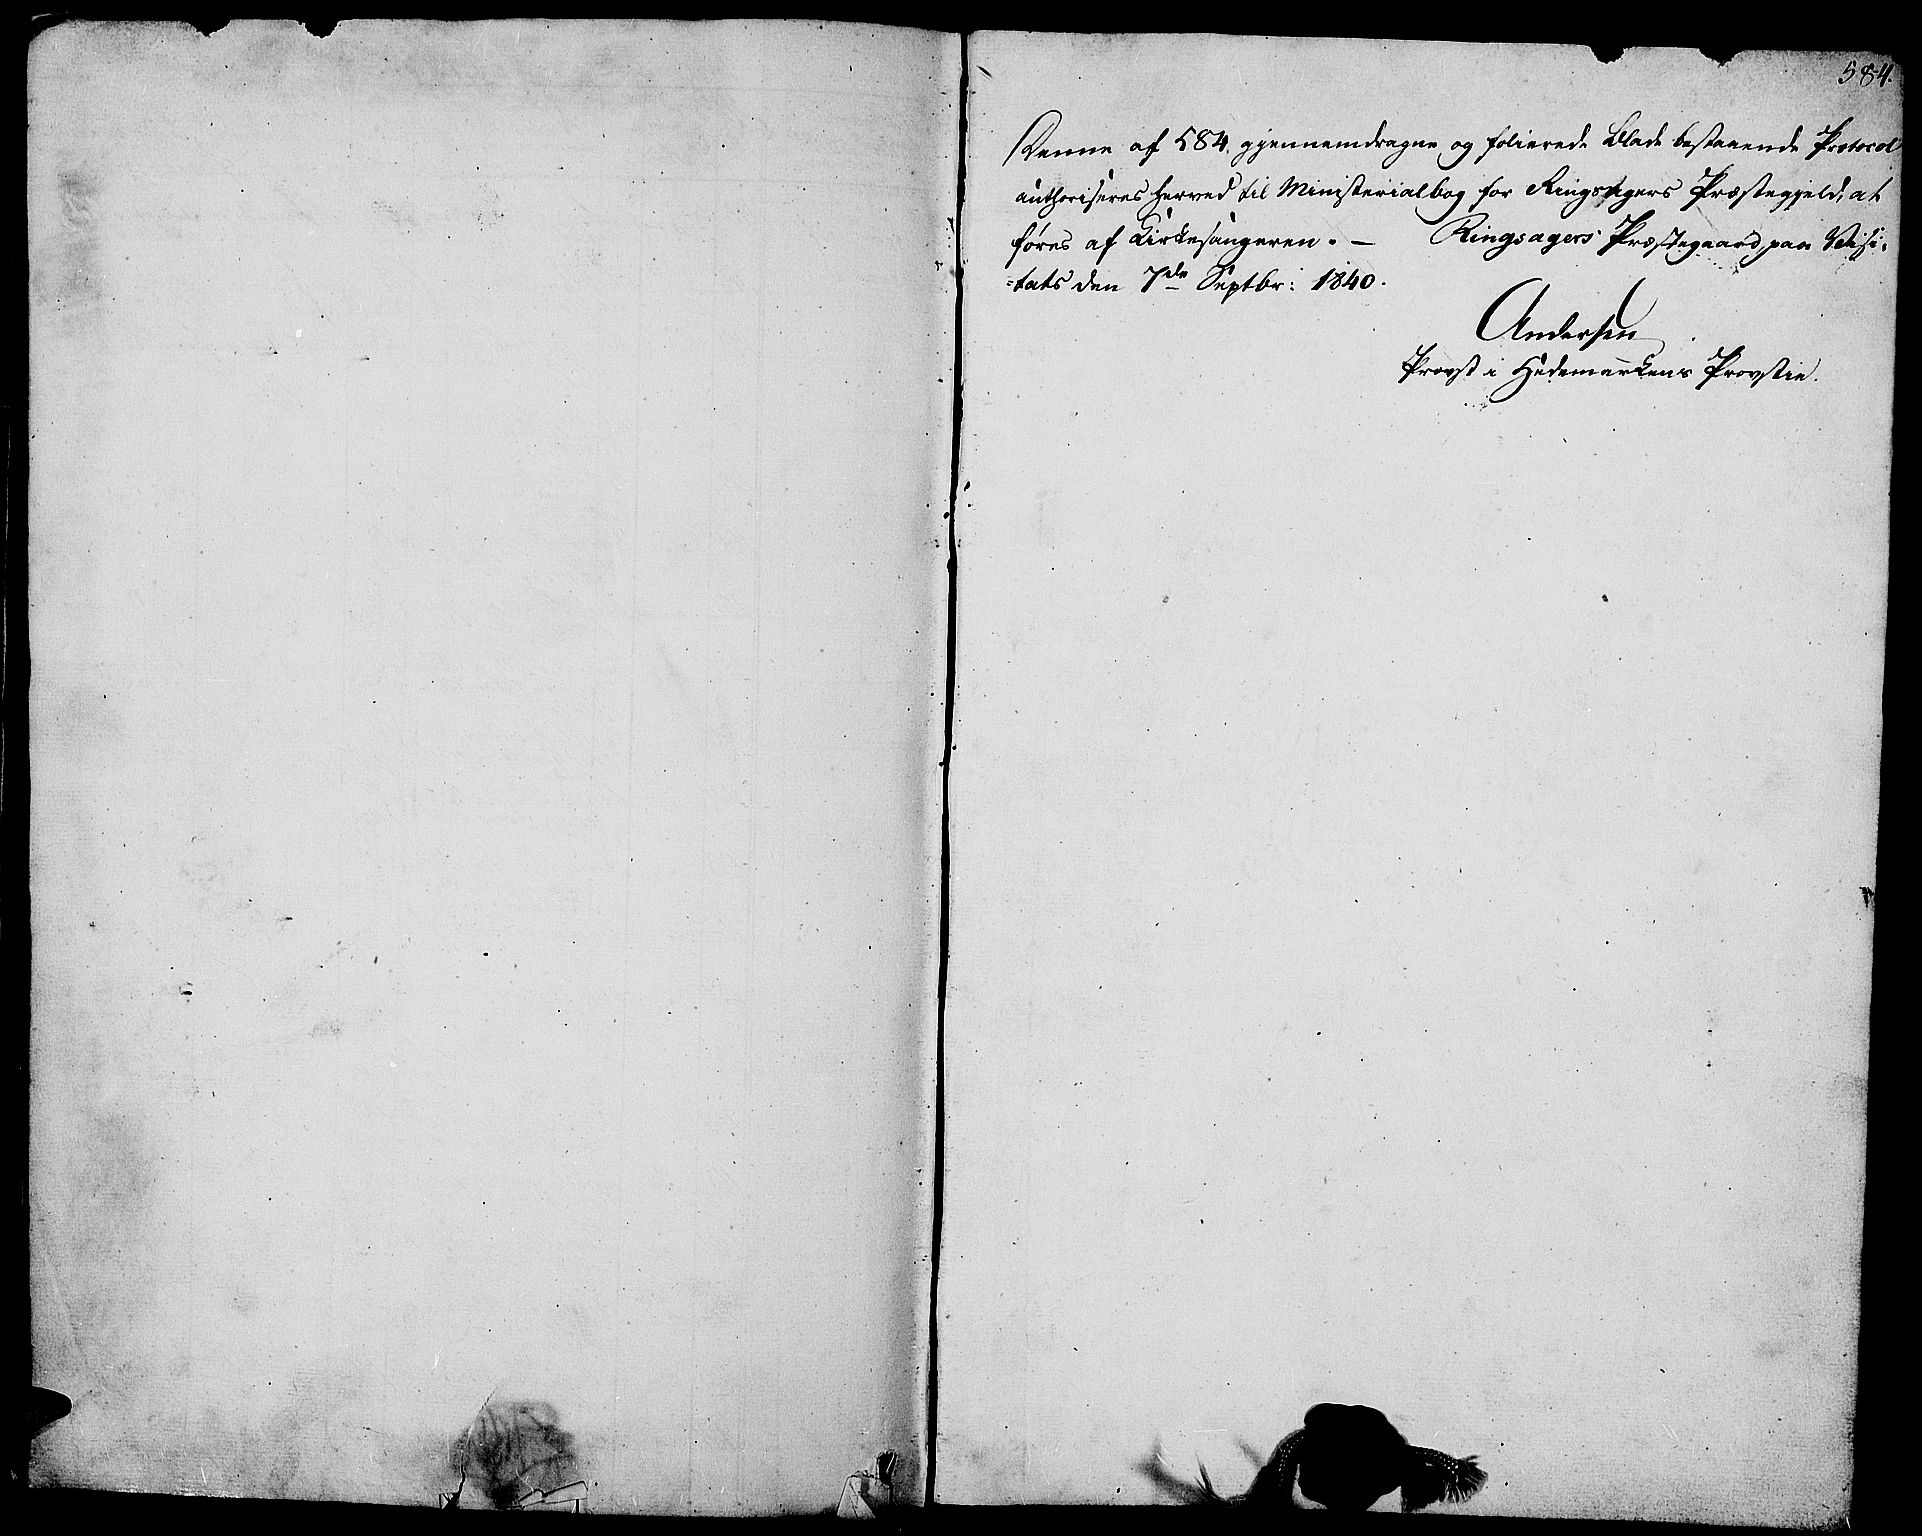 584.
Denne af 584, gjennemdragne og folierede Blade bestaaende Protocol
authoriseres herved til Ministerialbog for Ringsagers Præstegjeld, at
føres af Kirkesangeren. — Ringsagers Præstegaard paa Visi-
=tats den 7de Septbr: 1840.
Andersen
Provst i Hedemarkens Provstie.